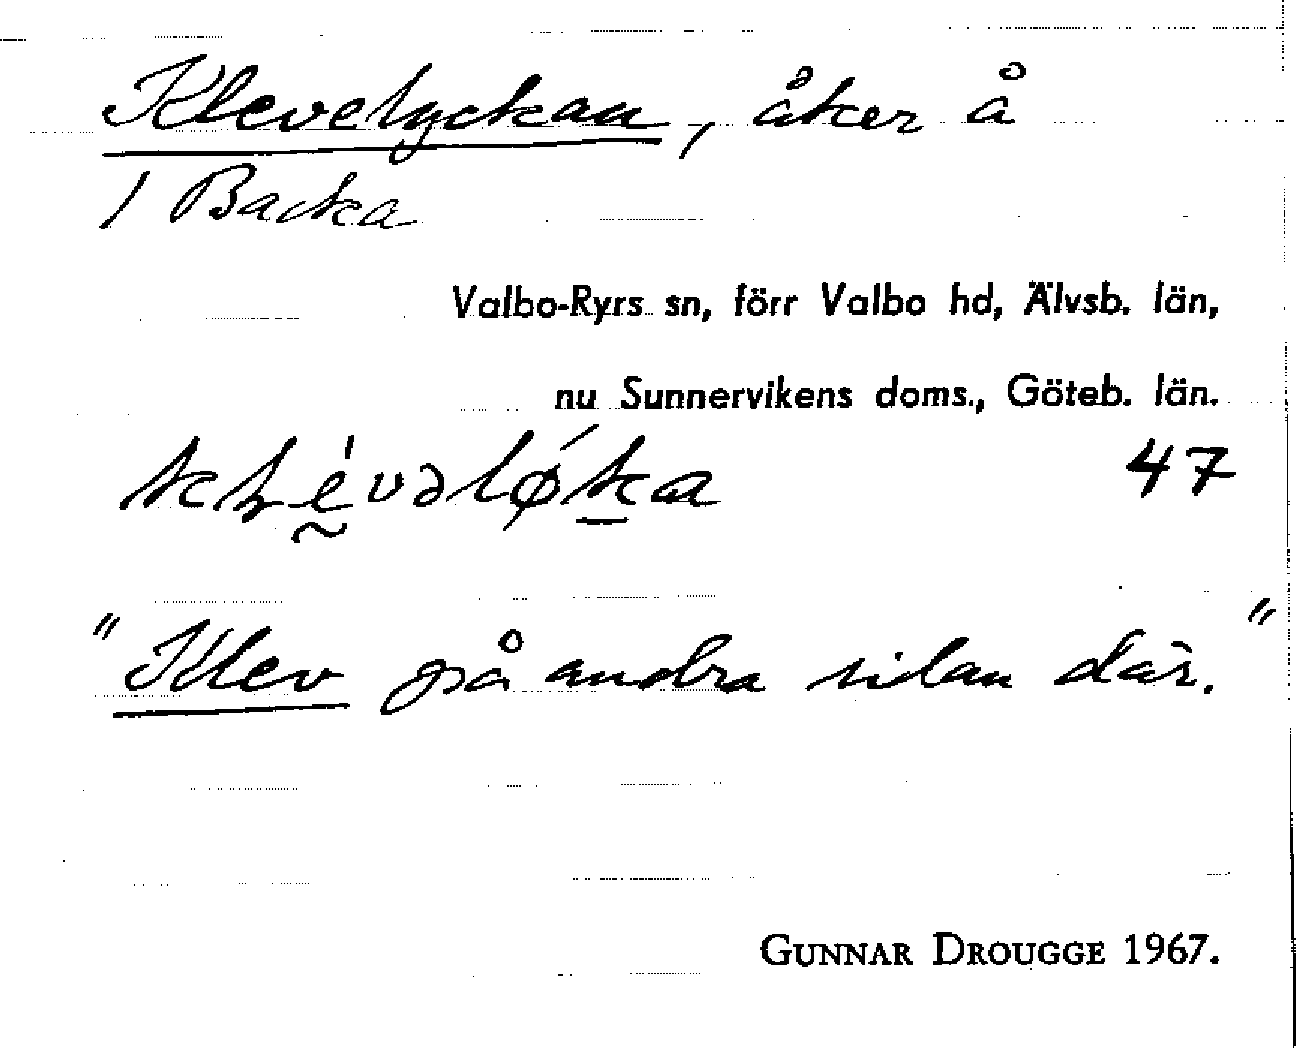 Klevelyckan, åker å
1 Backa
Valbo-Ryrs sn, förr Valbo hd, Älvsb. län,
nu Sunnervikens doms., Göteb. län.
47
"Klev på andra silan där."
GUNNAR DROUGGE 1967.